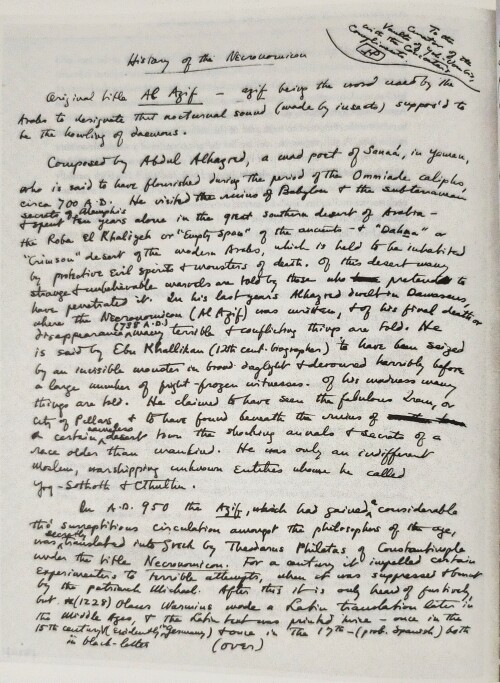 To the
Curator of the
Vaults of Yoh-Vombis,
with the Concocter's
Compliments.
History of the Necronomicon
Original title Al Azif — azif being the word used by the
Arabs to designate that nocturnal sound (made by insects) suppos'd to
be the howling of daemons.
Composed by Abdul Alhazred, a mad poet of Sanaá, in Yemen,
who is said to have flourished during the period of the Ommiade caliphs,
circa 700 A.D. He visited the ruins of Babylon & the subterranean
secrets of Memphis
& spent ten years alone in the great southern desert of Arabia —
the Roba El Khaliyeh or "Empty Space" of the ancients — & "Dahna" or
"Crimson" desert of the modern Arabs, which is held to be inhabited
by protective evil spirits & monsters of death. Of this desert many
strange & unbelievable marvels are told by those who pretend to
have penetrated it. In his last years Alhazred dwelt in Damascus,
where the Necronomicon (Al Azif) was written, & of his final death or
disappearance (738 A.D.) many terrible & conflicting things are told. He
is said by Ebn Khallikan (12th cent. biographer) to have been seized
by an invisible monster in broad daylight & devoured horribly before
a large number of fright-frozen witnesses. Of his madness many
things are told. He claimed to have seen the fabulous Irem, or
City of Pillars, & to have found beneath the ruins of
a certain nameless desert town the shocking annals & secrets of a
race older than mankind. He was only an indifferent
Moslem, worshipping unknown Entities whom he called
Yog-Sothoth & Cthulhu.
In A.D. 950 the Azif, which had gained a considerable
tho' surreptitious circulation amongst the philosophers of the age,
was secretly translated into Greek by Theodorus Philetas of Constantinople
under the title Necronomicon. For a century it impelled certain
experimenters to terrible attempts, when it was suppressed & burnt
by the patriarch Michael. After this it is only heard of furtively,
but (1228) Olaus Wormius made a Latin translation later in
the Middle Ages, & the Latin text was printed twice — once in the
15th century (evidently in Germany) & once in the 17th — (prob. Spanish) both
in black-letter
(over)